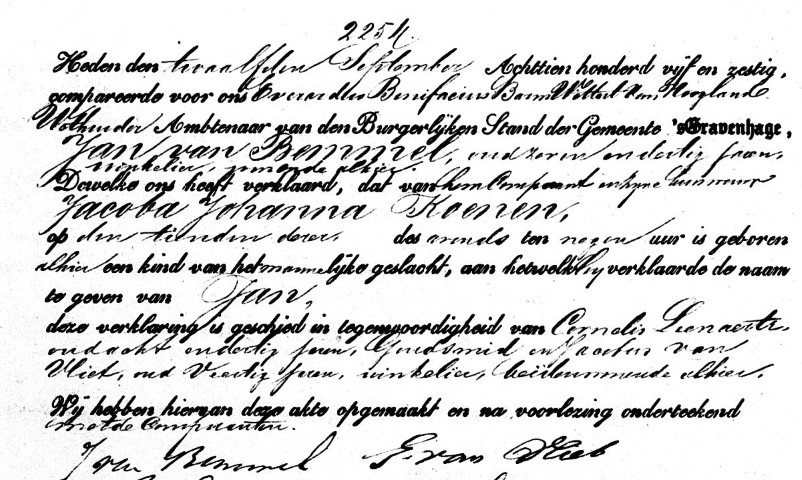 2254.
Heden den twaalfden September Achttien honderd vijf en zestig,
compareerde voor ons Everardus Bonifacius Wittert van Hoogland
Wethouder Ambtenaar van den Burgerlijken Stand der Gemeente 'sGravenhage,
Jan van Bemmel, oud zeven en dertig jaren,
winkelier, wonende alhier.
Dewelke ons heeft verklaard, dat van hem Comparant en zijne huisvrouw
Jacoba Johanna Koenen,
op den tienden dezer, des avonds ten negen uur is geboren
alhier een kind van het mannelijke geslacht, aan hetwelk hij verklaarde de naam
te geven van Jan,
deze verklaring is geschied in tegenwoordigheid van Cornelis Leenaerts,
oud acht en dertig jaren, Goudsmid en van
Vliet, oud Veertig jaren, winkelier, beide wonende alhier.
Wij hebben hiervan deze akte opgemaakt en na voorlezing onderteekend
met de Comparanten.
J van Bemmel G. van Vliet